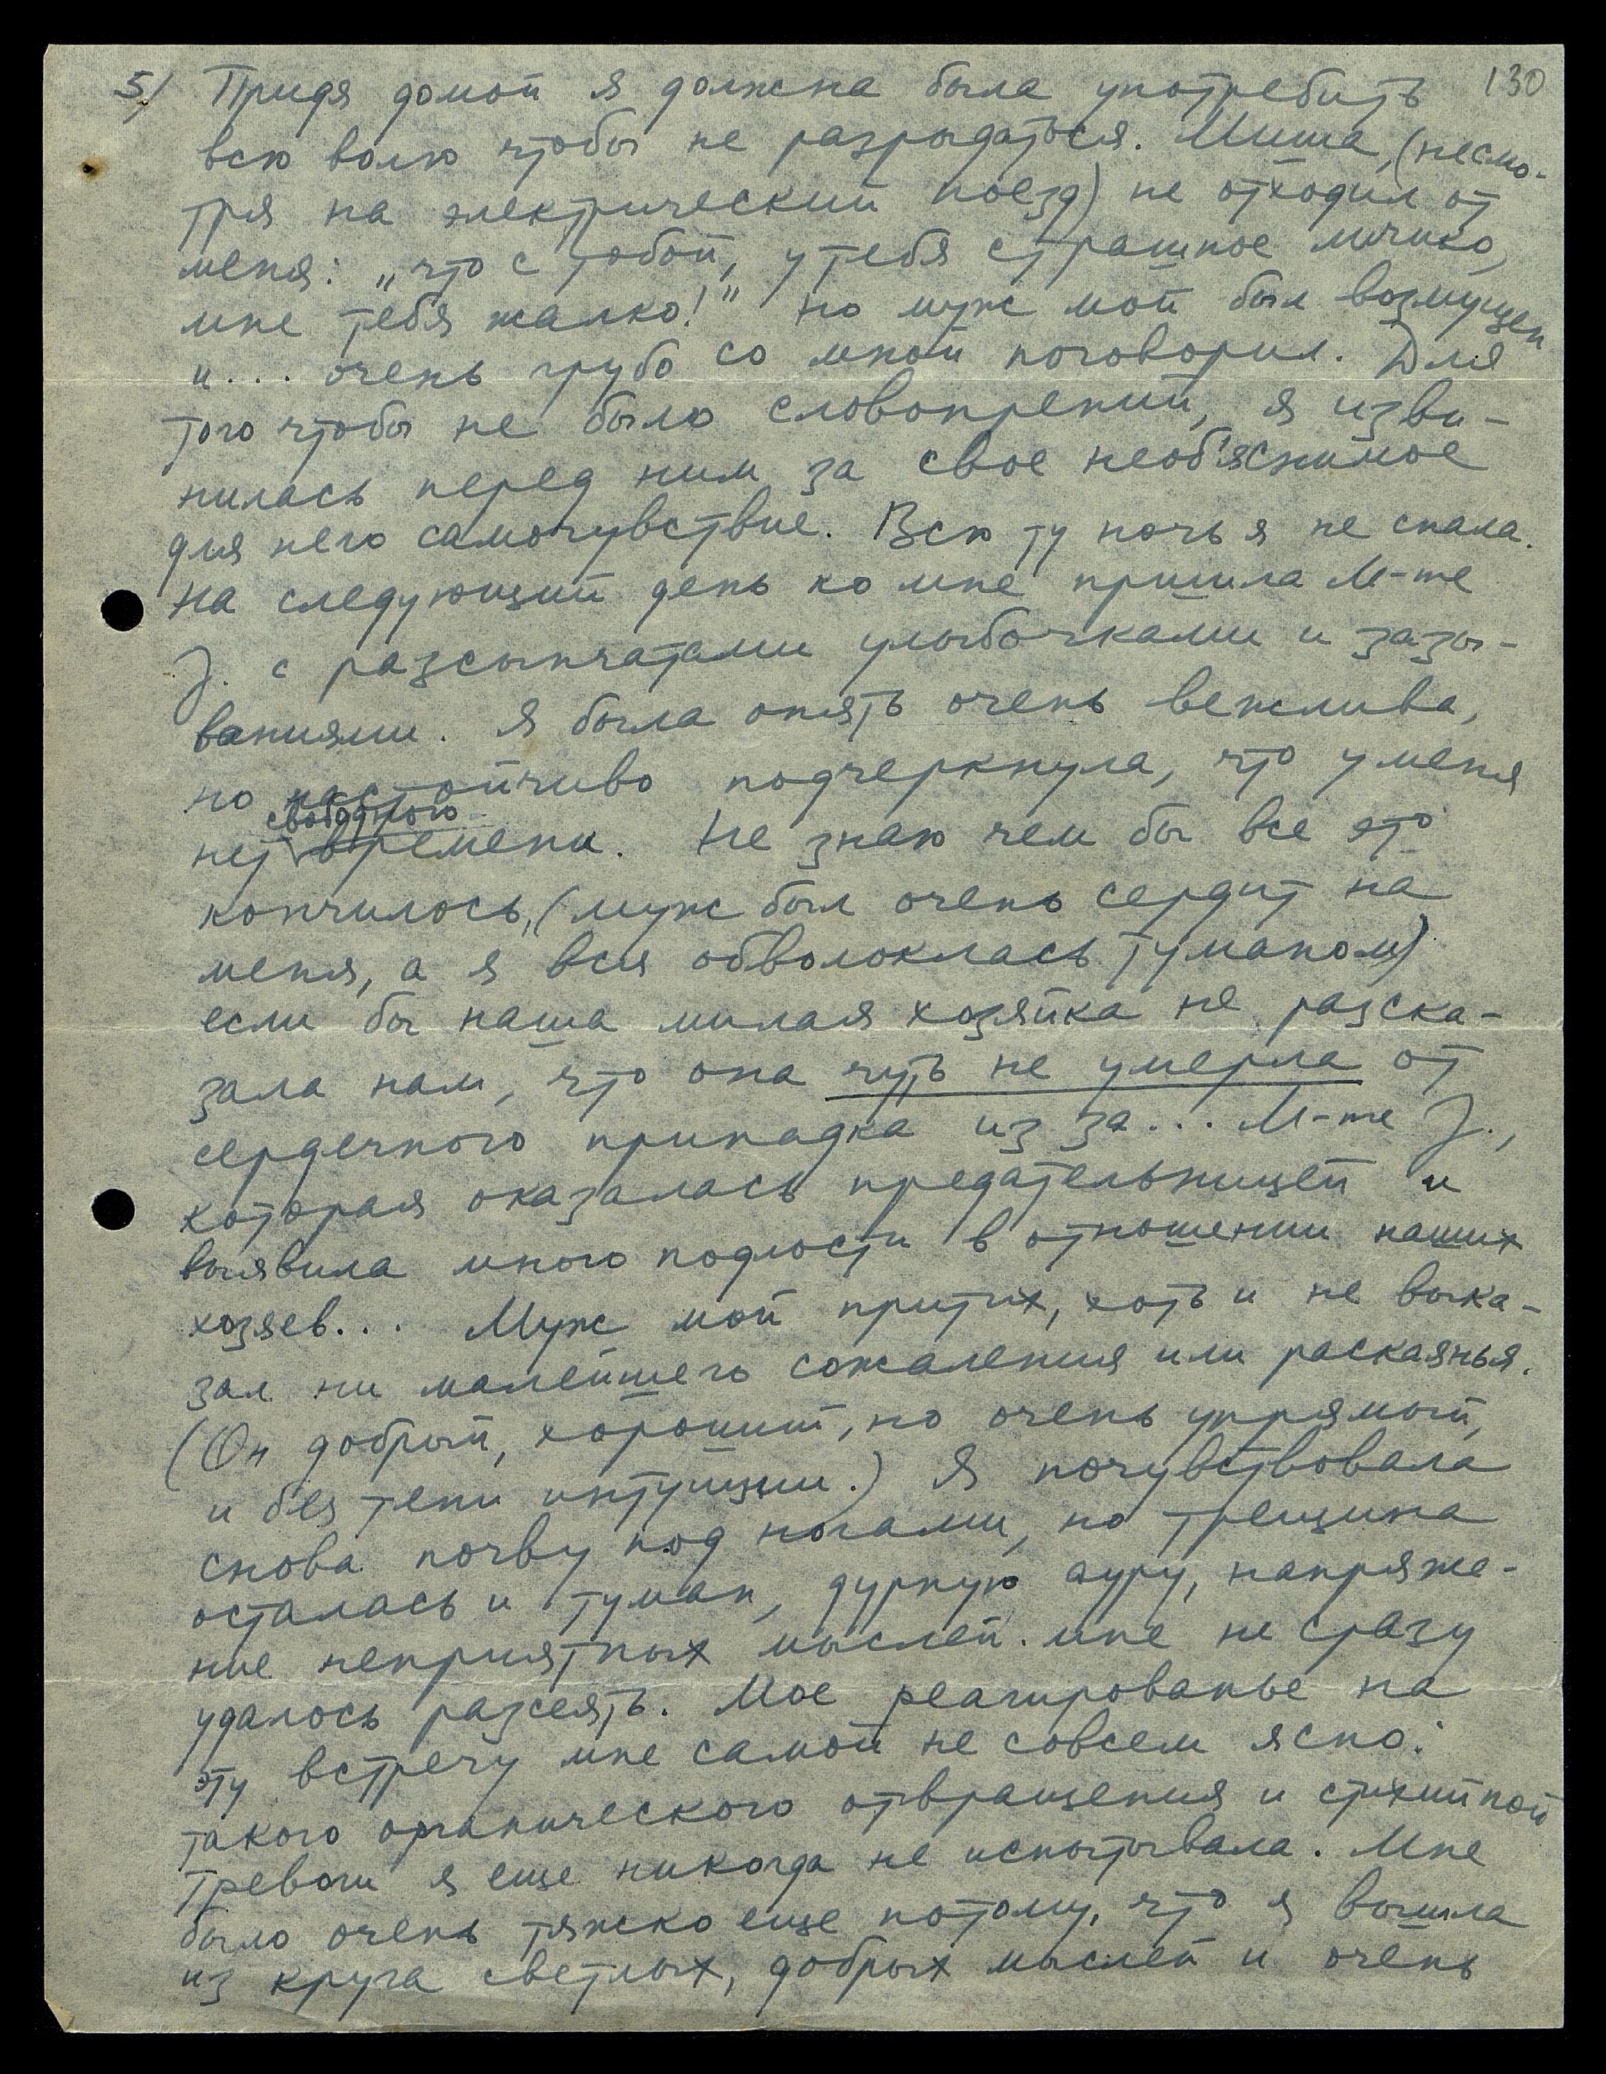 5) Придя домой я должна была употребить 130
всю волю чтобы не разрыдаться. Миша, (несмо-
тря на электрический поезд) не отходил от
меня: „что с тобой, у тебя страшное личико,
мне тебя жалко!" но муж мой был возмущен
и... очень грубо со мной поговорил. Для
того чтобы не было словопрений, я изви-
нилась перед ним за свое необ'яснимое
для него самочувствие. Всю ту ночь я не спала.
На следующий день ко мне пришла М-me
J. с разсыпчатами улыбочками и зазы-
ваниями. Я была опять очень вежлива,
но настойчиво подчеркнула, что у меня
нет свободного времени. Не знаю чем бы все это
кончилось, (муж был очень сердит на
меня, а я вся обволоклась туманом)
если бы наша милая хозяйка не разска-
зала нам, что она чуть не умерла от
сердечного припадка из за... М-me J.,
которая оказалась предательницей и
выявила много подлости в отношении наших
хозяев... Муж мой притих, хоть и не выка-
зал ни малейшего сожаления или раскаянья.
(Он добрый, хороший, но очень упрямый,
и без тени интуиции.) Я почувствовала
снова почву под ногами, но трещина
осталась и туман, дурную ауру, напряже-
ние неприятных мыслей мне не сразу
удалось разсеять. Мое реагированье на
эту встречу мне самой не совсем ясно:
такого органического отвращения и стихийной
тревоги я еще никогда не испытывала. Мне
было очень тяжко еще потому, что я вышла
из круга светлых, добрых мыслей и очень